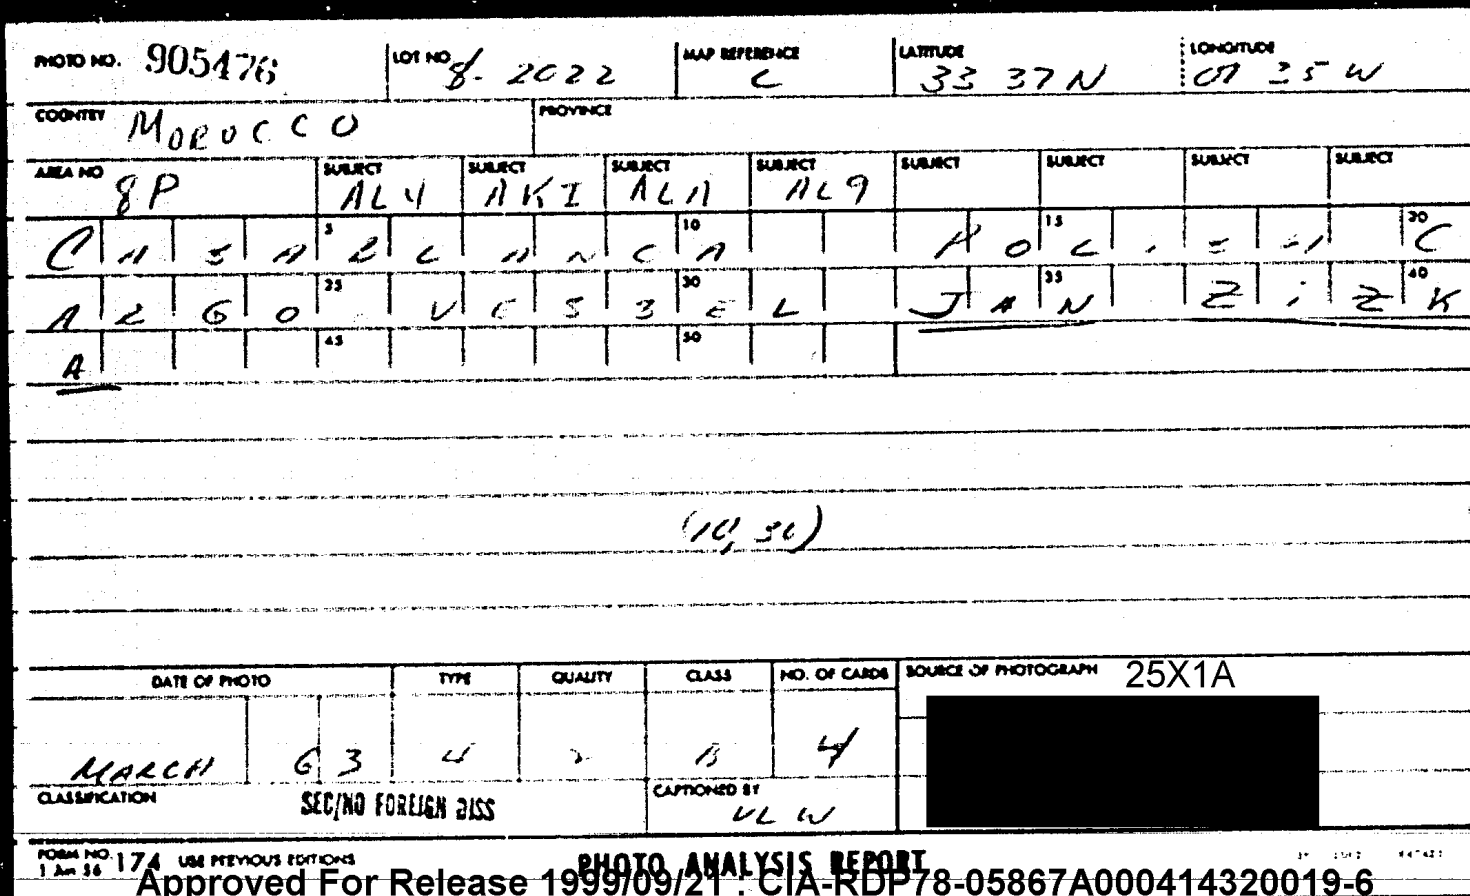 PHOTO NO. 905476 LOT NO 8-2022 MAP REFERENCE C LATITUDE 33 37N LONGITUDE 07 35 W
COUNTRY MOROCCO PROVINCE
AREA NO 8P SUBJECT AL4 SUBJECT AKI SUBJECT ALA SUBJECT AL9 SUBJECT SUBJECT SUBJECT SUBJECT
5 10 15 20
CASABLANCA POLISH C
25 30 35 40
ARGO VESSEL JAN ZIZK
45 50
A
DATE OF PHOTO TYPE QUALITY CLASS NO. OF CARDS SOURCE OF PHOTOGRAPH 25X1A
MARCH 63 4 2 B 4
CLASSIFICATION SEC/NO FOREIGN DISS CAPTIONED BY VLW
FORM NO. 174 USE PREVIOUS EDITIONS PHOTO ANALYSIS REPORT
1 Apr 56
Approved For Release 1999/09/21 : CIA-RDP78-05867A000414320019-6